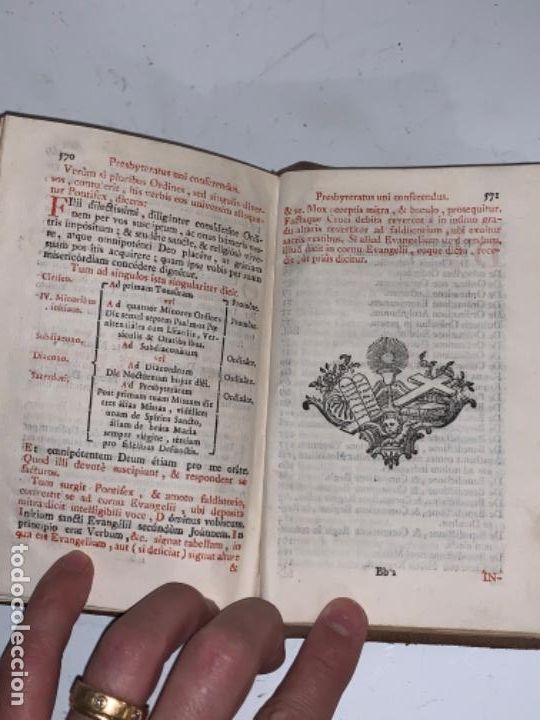 570
Presbyteratus uni conferendus.
Verùm si pluribus Ordines, sed singulis diver-
sos, contulerit, his verbis eos universim alloqua-
tur Pontifex, dicens:
Filii dilectissimi, diligenter considerate Ordi-
nem per vos susceptum, ac onus humeris ve-
stris impositum; & studete sanctè, & religiosè vive-
re, atque omnipotenti Deo placere, ut gratiam
suam possitis acquirere; quam ipse vobis per suam
misericordiam concedere dignetur.
Tum ad singulos ista singulariter dicit.
Clerico.
Ad primam Tonsuram
vel
Promotus.
IV. Minoribus
initiato.
Ad quatuor Minores Ordines
Dic semel septem Psalmos Pœ-
nitentiales cum Litaniis, Ver-
siculis & Orationibus.
Promotus.
Subdiacono.
Ad Subdiaconatum
vel
Ordinatus.
Diacono.
Ad Diaconatum
Dic Nocturnum hujus diei.
Ordinatus.
Sacerdoti.
Ad Presbyteratum
Post primam tuam Missam dic
tres alias Missas, videlicet
unam de Spiritu Sancto,
aliam de beata Maria
semper virgine, tertiam
pro fidelibus Defunctis.
Ordinatus.
Et omnipotentem Deum etiam pro me orate.
Quod illi devotè suscipiunt, & respondent se
facturos.
Tum surgit Pontifex, & amoto faldistorio,
convertit se ad cornu Evangelii, ubi deposita
mitra dicit intelligibili voce, Dominus vobiscum.
Initium sancti Evangelii secundùm Joannem. In
principio erat Verbum, &c. signat tabellam, in
qua est Evangelium, aut (si deficiat) signat altare
&
Presbyteratus uni conferendus.
571
& se. Mox accepta mitra, & baculo, prosequitur.
Factaque Cruci debita reverentia in infimo gra-
du altaris revertitur ad faldistorium, ubi exuitur
sacris vestibus. Si aliud Evangelium sit dicendum,
illud dicit in cornu Evangelii, eoque dicto, rece-
dit, ut priùs dicitur.
Bb 2
IN-
todocoleccion.net